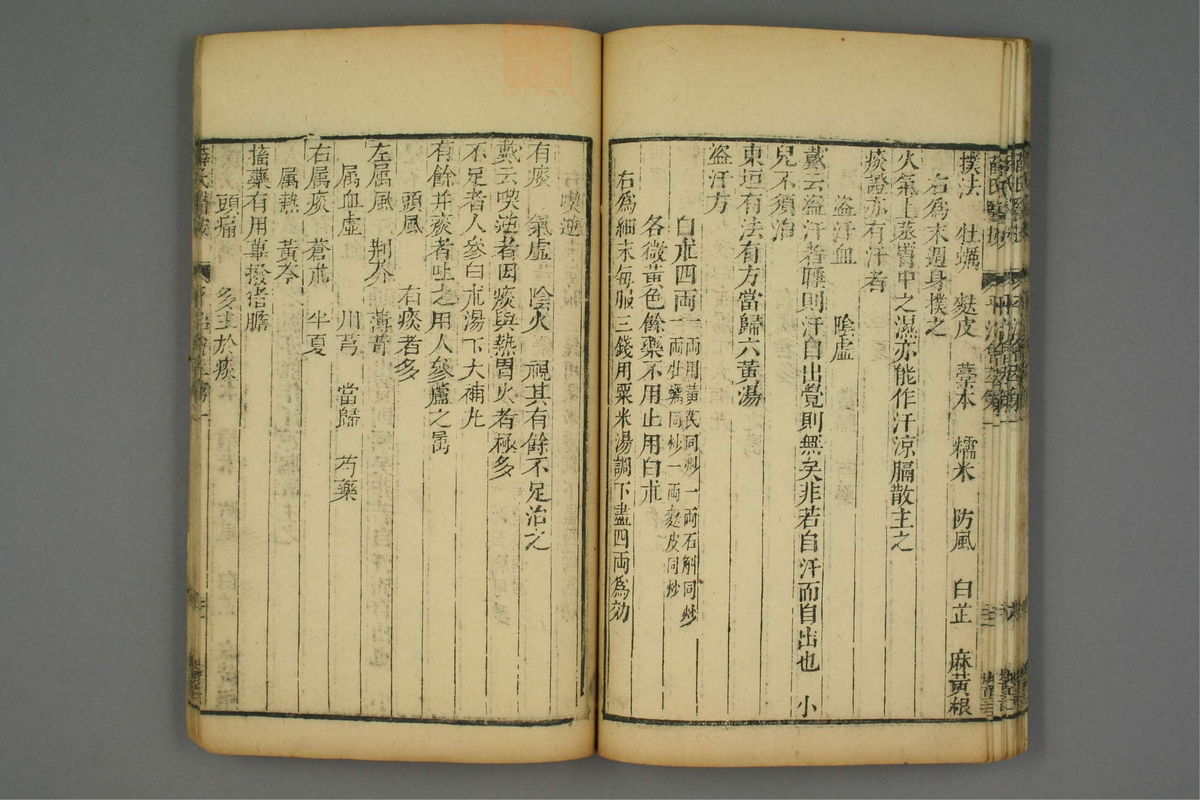 撲法　牡蠣　麩皮　藁本　糯米　防風　白芷　麻黃根
右爲末週身撲之
火氣上蒸胃中之濕亦能作汗涼膈散主之
痰證亦有汗者
盜汗血　陰虛
戴云盜汗者睡則汗自出覺則無矣非若自汗而自出也　小
兒不須治
東垣有法有方當歸六黃湯
盜汗方
白朮四兩一兩用黃芪同炒一兩石斛同炒
一兩牡蠣同炒一兩麩皮同炒
各微黃色餘藥不用止用白朮
右爲細末每服三錢用粟米湯調下盡四兩爲効
喫逆
有痰　氣虛　陰火　視其有餘不足治之
戴云喫逆者因痰與熱胃火者極多
不足者人參白朮湯下大補丸
有餘并痰者吐之用人參蘆之屬
頭風
有痰者多
左屬風　荆芥　薄荷
屬血虛　川芎　當歸　芍藥
右屬痰　蒼朮　半夏
屬熱　黃芩
搐藥有用蓽撥猪膽
頭痛　多主於痰
薛氏醫按